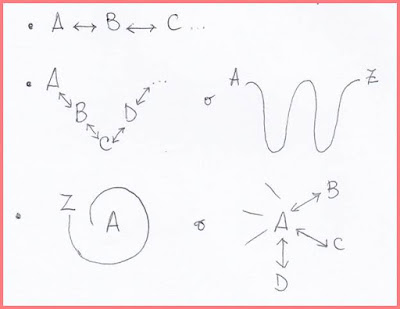 • A ↔ B ↔ C ...
• A ...
B D
C
A Z
• Z A
A B
C
D